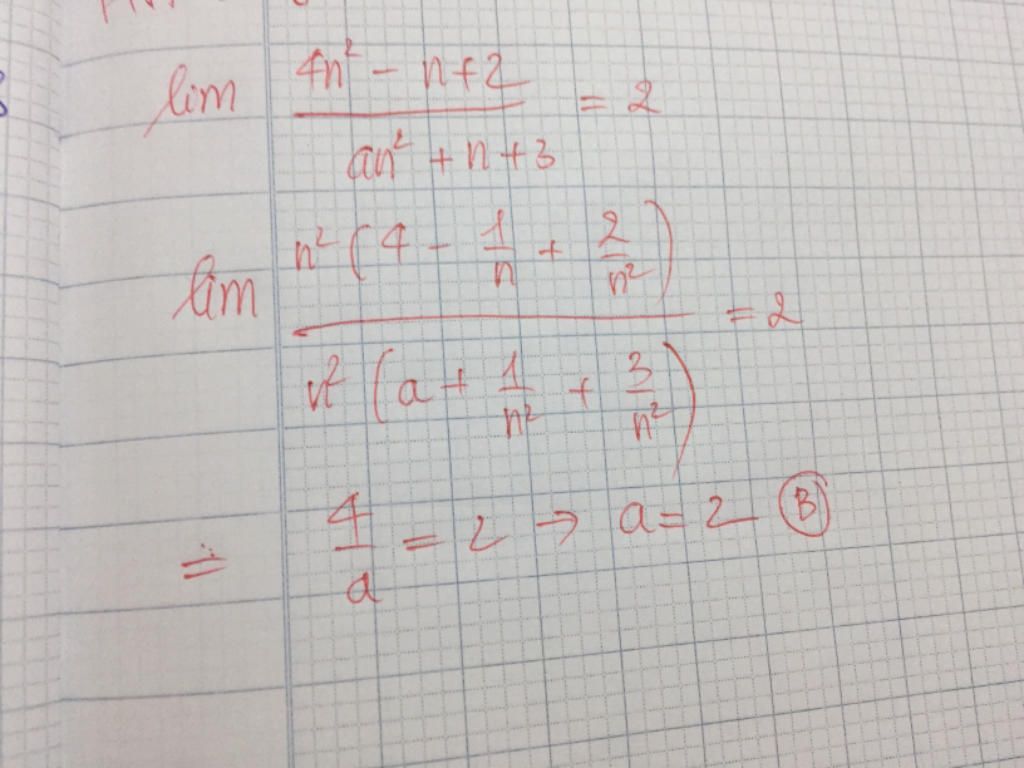 lim (4n² - n + 2)/(an² + n + 3) = 2
lim (n² (4 - 1/n + 2/n²))/(n² (a + 1/n² + 3/n²)) = 2
= 4/a = 2 → a = 2 Ⓑ